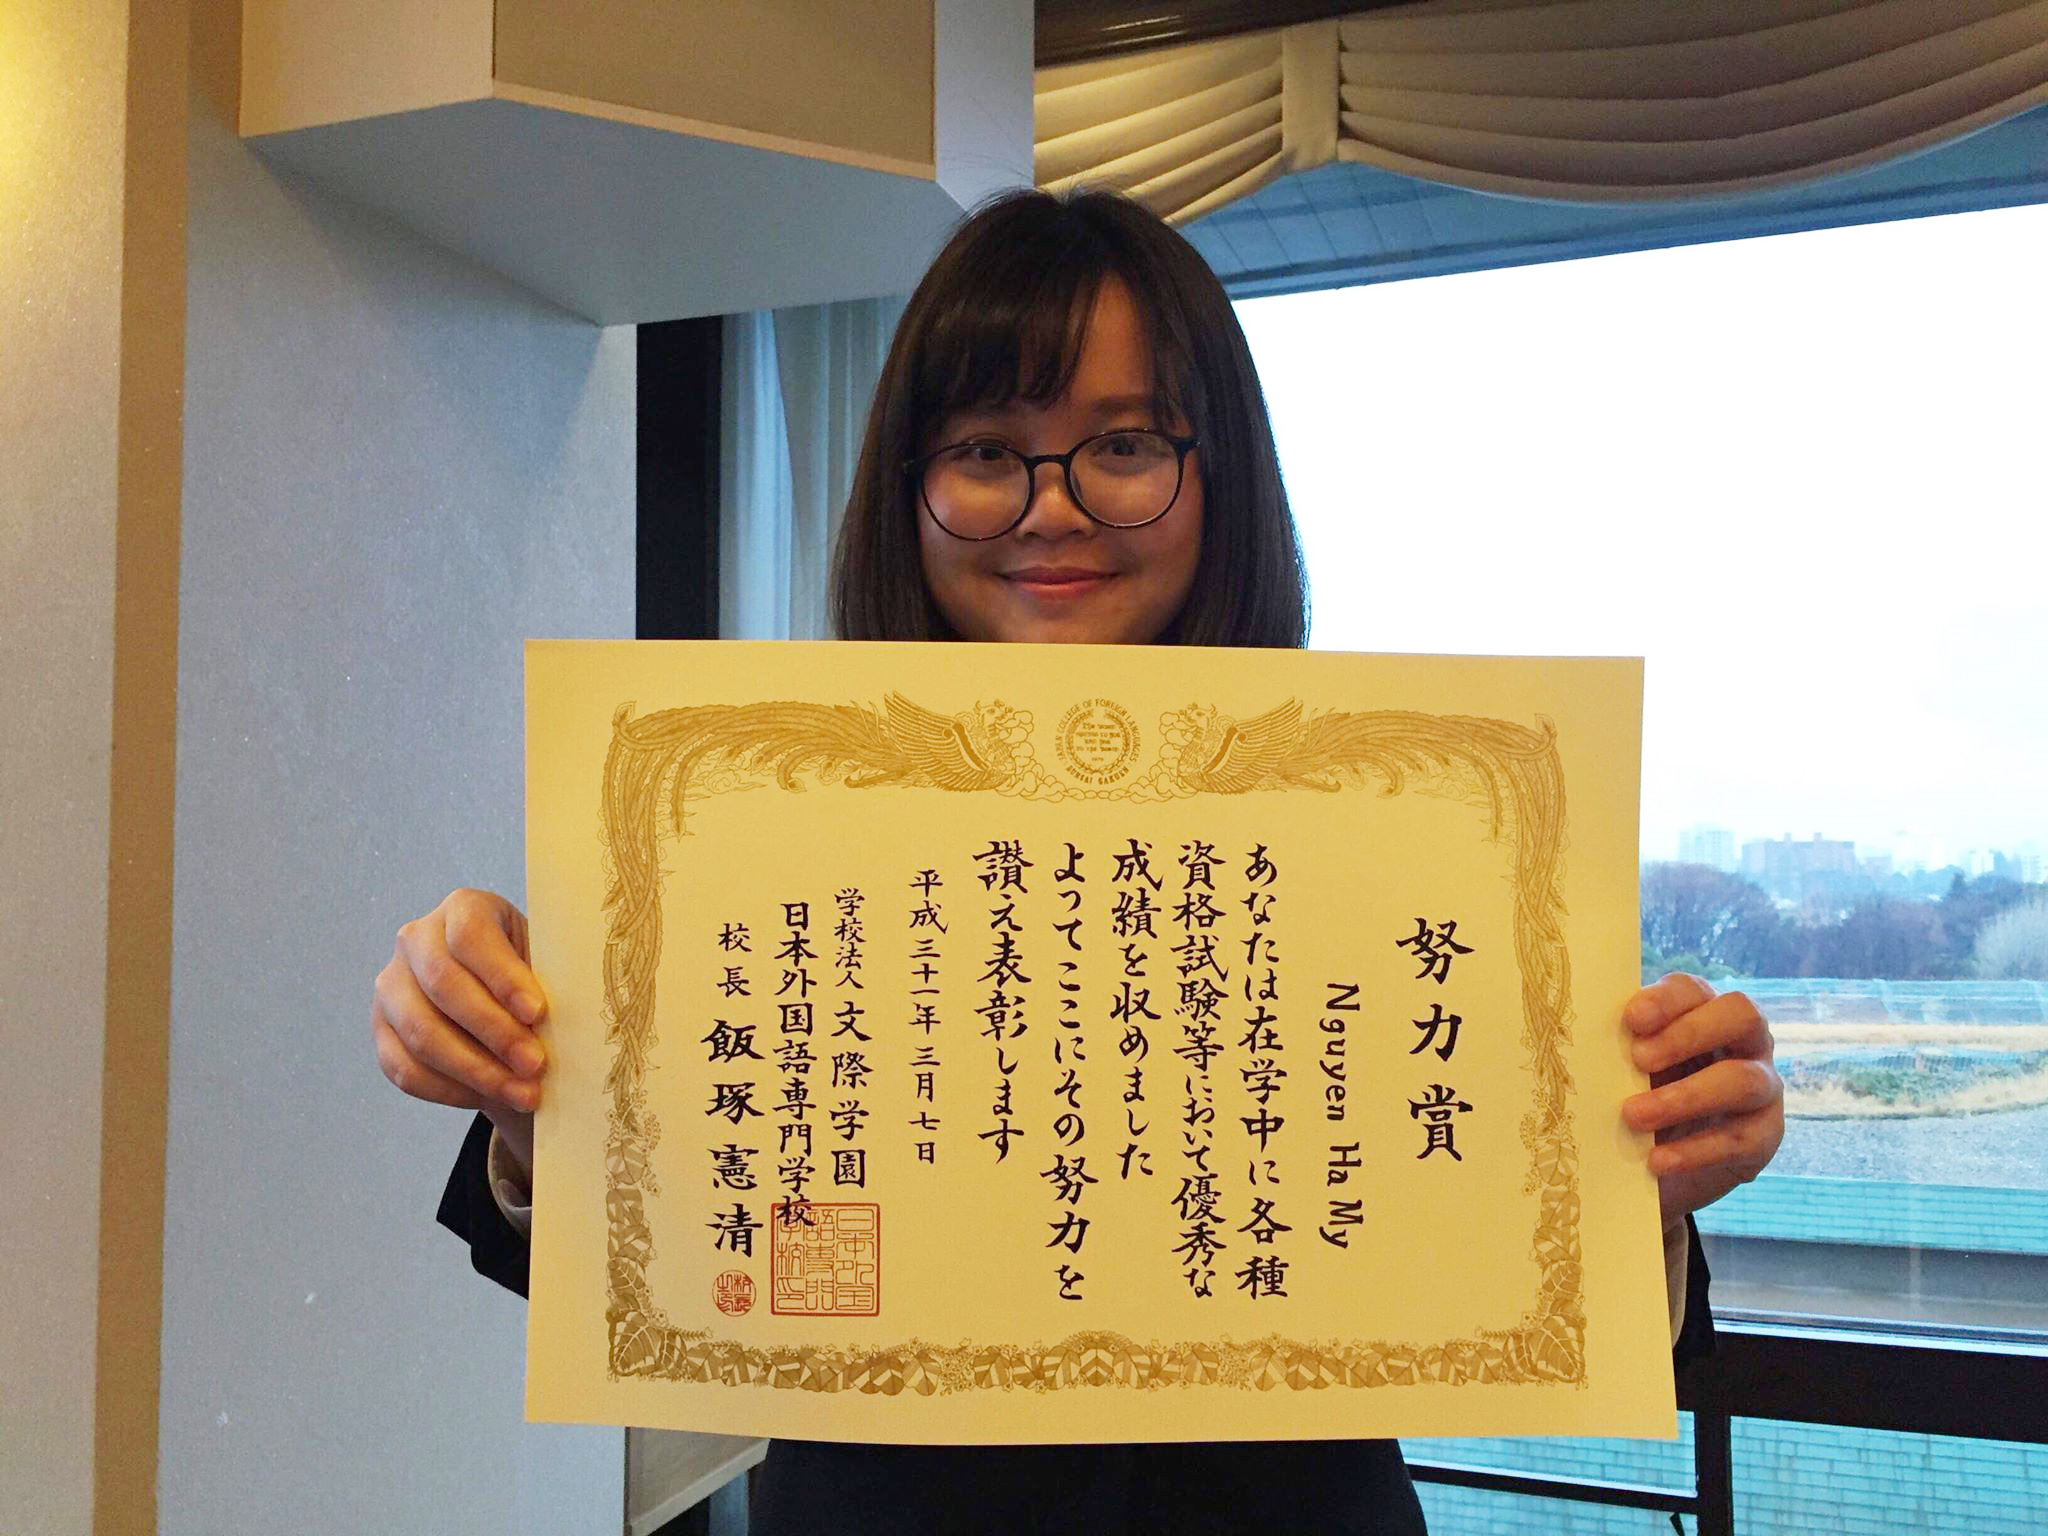 努力賞
Nguyen Ha My
あなたは在学中に各種
資格試験等において優秀な
成績を収めました
よってここにその努力を
讃え表彰します
平成三十一年三月七日
学校法人 文際学園
日本外国語専門学校
校長 飯塚憲清
JAPAN COLLEGE OF FOREIGN LANGUAGES
BUNSAI GAKUEN